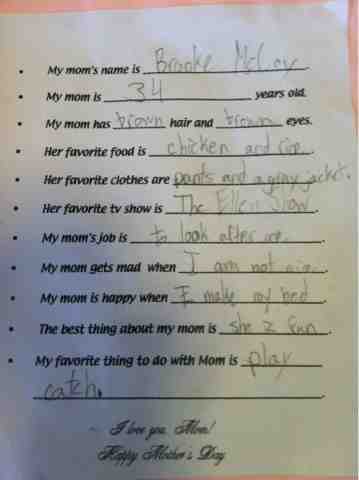 • My mom's name is Brooke McLay
• My mom is 34 years old.
• My mom has brown hair and brown eyes.
• Her favorite food is chicken and rice.
• Her favorite clothes are pants and a gray jacket.
• Her favorite tv show is The Ellen Show.
• My mom's job is to look after me.
• My mom gets mad when I am not nice.
• My mom is happy when I make my bed.
• The best thing about my mom is she z fun.
• My favorite thing to do with Mom is play
catch.
I love you, Mom!
Happy Mother's Day